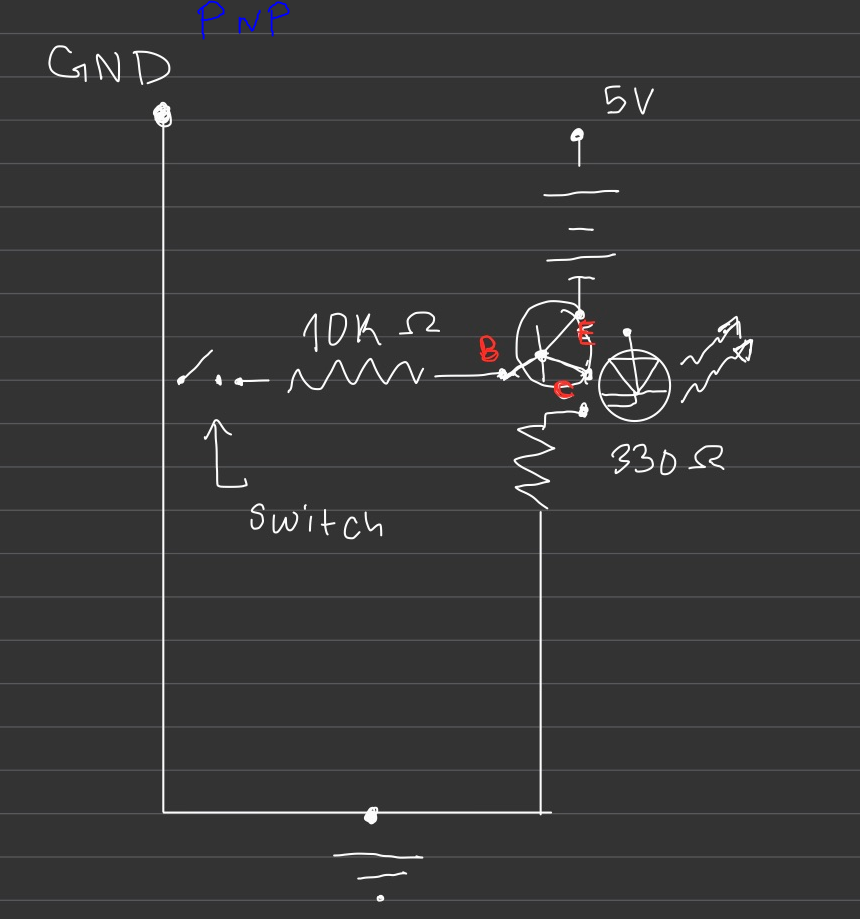 PNP
GND
5V
10K Ω
B
E
C
330 Ω
Switch